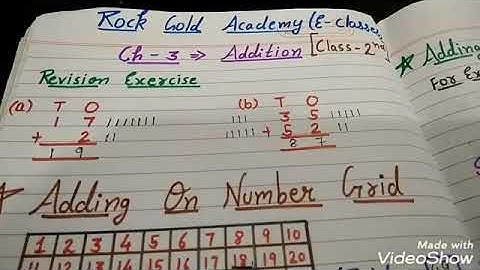 Rock Gold Academy (E-classes
Ch-3 ⇒ Addition [Class-2nd]
Revision Exercise
(a) T O
1 7
+ 2
1 9
(b) T O
3 5
+ 5 2
8 7
Adding On Number Grid
1 2 3 4 5 6 7 8 9 10
11 12 13 14 15 16 17 18 19 20
Adding
For Ex
Made with
VideoShow